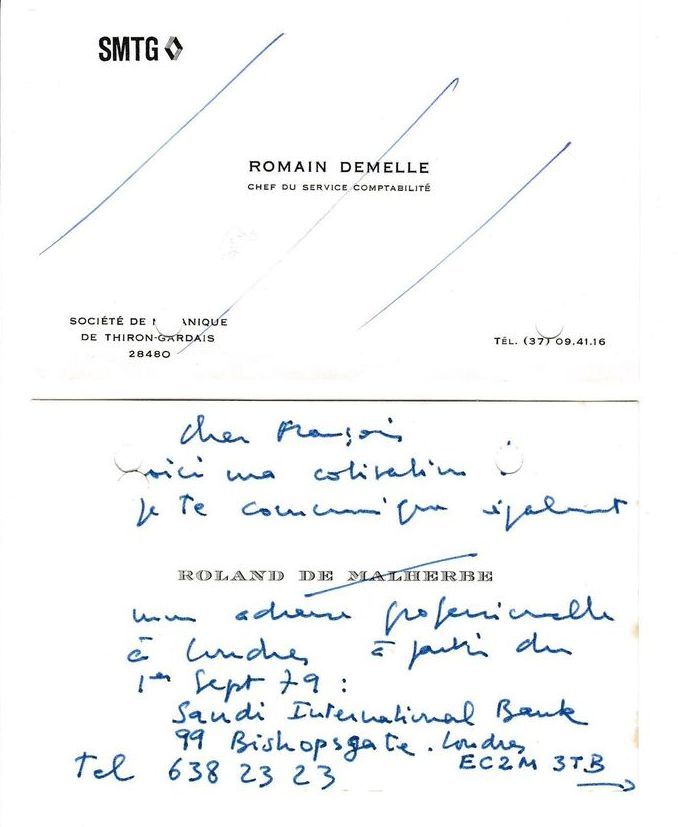 SMTG
ROMAIN DEMELLE
CHEF DU SERVICE COMPTABILITÉ
SOCIÉTÉ DE M ANIQUE
DE THIRON-GARDAIS
28480
TÉL. (37) 09.41.16
cher François
voici ma cotisation :
je te communique également
ROLAND DE MALHERBE
mon adresse professionnelle
à Londres à partir du
1er Sept 79 :
Saudi International Bank
99 Bishopsgate. Londres
EC2M 3TB
Tel 638 23 23